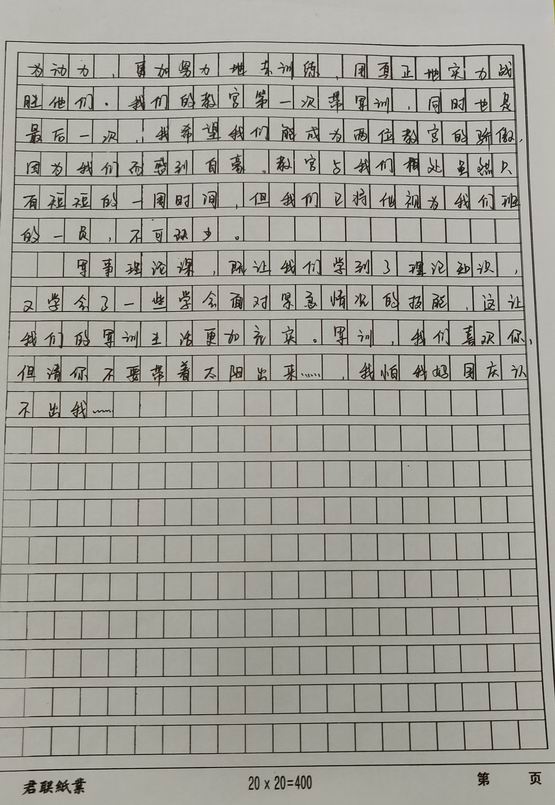 为动力，更加努力地去训练，用真正地实力战
胜他们。我们的教官第一次带军训，同时也是
最后一次，我希望我们能成为两位教官的骄傲，
因为我们而感到自豪。教官与我们相处虽然只
有短短的一周时间，但我们已将他视为我们班
的一员，不可缺少。
军事理论课，既让我们学到了理论知识，
又学会了一些学会面对紧急情况的技能，这让
我们的军训生活更加充实。军训，我们喜欢你，
但请你不要带着太阳出来……，我怕我妈国庆认
不出我……
君联纸業
20 x 20=400
第 页